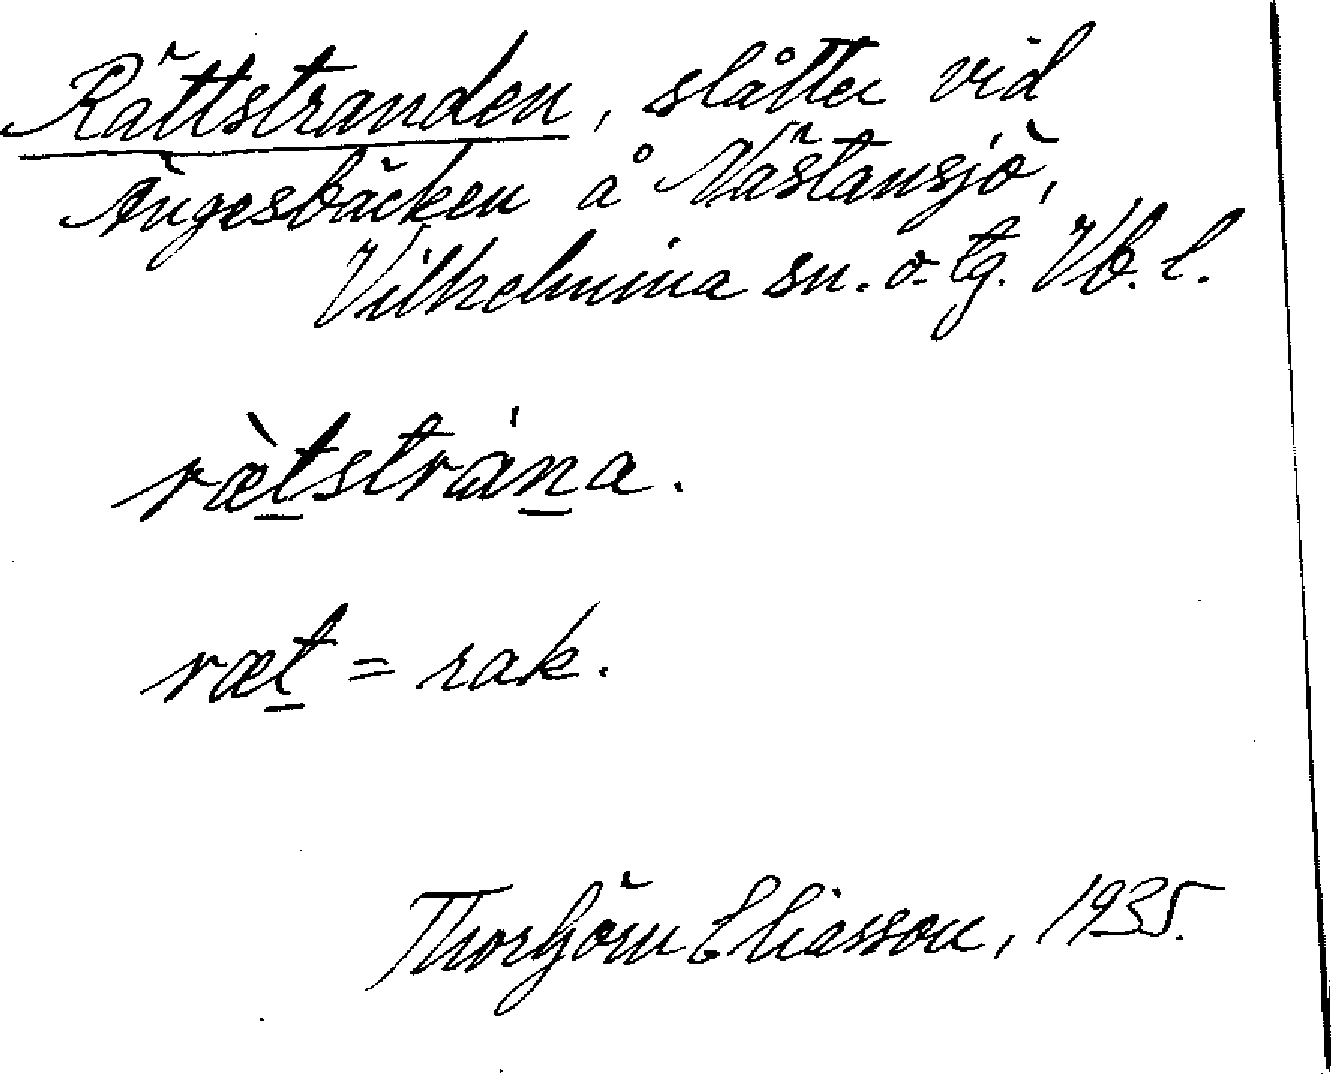 Rättstranden, slåtter vid
Ängesbäcken å Västansjö,
Vilhelmina sn. o. tg. Vb. l.
ræ̀t̲strán̲a.
ræt̲ = rak.
Thorbjörn Eliasson, 1935.